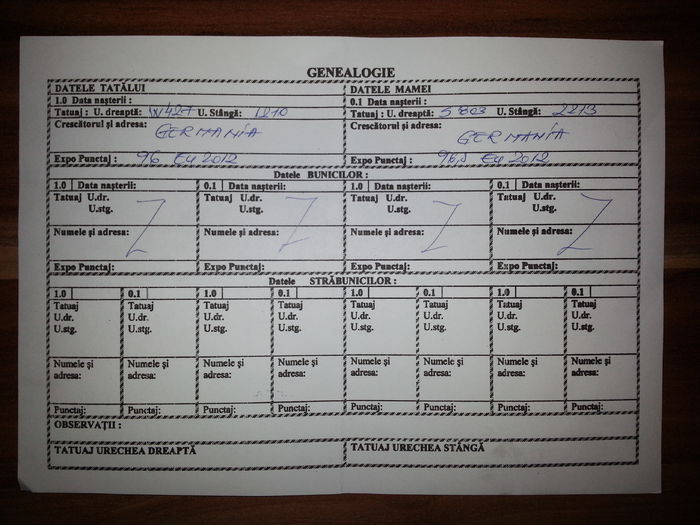 GENEALOGIE
DATELE TATĂLUI DATELE MAMEI
1.0 Data nașterii: 0.1 Data nașterii:
Tatuaj : U. dreaptă: W427 U. Stângă: 1210 Tatuaj : U. dreaptă: S 803 U. Stângă: 2213
Crescătorul și adresa: GERMANIA Crescătorul și adresa: GERMANIA
Expo Punctaj : 96 EU 2012 Expo Punctaj : EU 2012
Datele BUNICILOR :
1.0 Data nașterii: 0.1 Data nașterii: 1.0 Data nașterii: 0.1 Data nașterii:
Tatuaj U.dr. Tatuaj U.dr. Tatuaj U.dr. Tatuaj U.dr.
U.stg. U.stg. U.stg. U.stg.
Numele și adresa: Numele și adresa: Numele și adresa: Numele și adresa:
Expo Punctaj: Expo Punctaj: Expo Punctaj: Expo Punctaj:
Datele STRĂBUNICILOR :
1.0 0.1 1.0 0.1 1.0 0.1 1.0 0.1
Tatuaj Tatuaj Tatuaj Tatuaj Tatuaj Tatuaj Tatuaj Tatuaj
U.dr. U.dr. U.dr. U.dr. U.dr. U.dr. U.dr. U.dr.
U.stg. U.stg. U.stg. U.stg. U.stg. U.stg. U.stg. U.stg.
Numele și Numele și Numele și Numele și Numele și Numele și Numele și Numele și
adresa: adresa: adresa: adresa: adresa: adresa: adresa: adresa:
Punctaj: Punctaj: Punctaj: Punctaj: Punctaj: Punctaj: Punctaj: Punctaj:
OBSERVAȚII :
TATUAJ URECHEA DREAPTĂ TATUAJ URECHEA STÂNGĂ